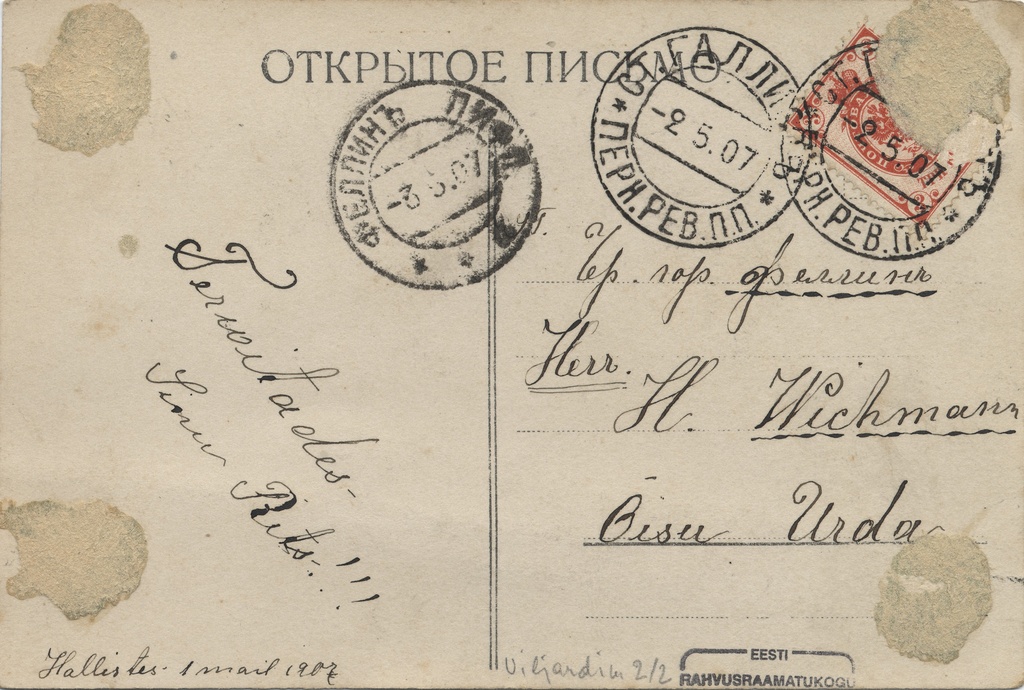 ОТКРЫТОЕ ПИСЬМО
ФЕЛЛИНЪ ЛИФЛ.
-3.5.07
СТ. ГАЛЛИ
-2.5.07
ПЕРН.РЕВ.П.П.
-2.5.07
ПЕРН.РЕВ.П.П.
Гр. гор. Феллинъ
Herr.
H. Wichmann
Õisu Urda
Terwitades-
Sinu Rits.!!!
Hallistes. 1 mail 1907
Viljardim 2/2
EESTI
RAHVUSRAAMATUKOGU